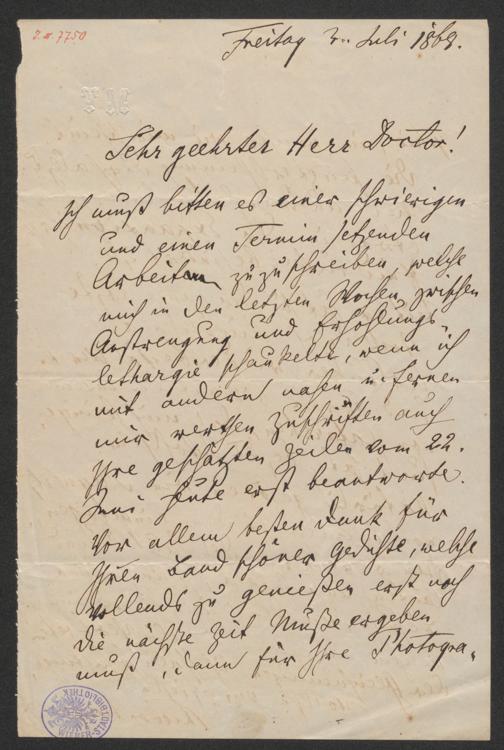 J. N. 7750
Freitag 3. Juli 1868.
Sehr geehrter Herr Doctor!
Ich muß bitten es einer schwierigen
und einen Termin setzenden
Arbeit zuzuschreiben, welche
mich in den letzten Wochen zwischen
Anstrengung und Erhohlungs-
lethargie schaukelte, wenn ich
mit andern nahen u. fernen
mir werthen Zuschriften auch
Ihre geschätzten Zeilen vom 22.
Juni heute erst beantworte.
Vor allem besten Dank für
Ihren Band schöner Gedichte, welche
vollends zu genießen erst noch
die nächste Zeit Muße ergeben
muß, dann für Ihre Photogra-
WIENER STADTBIBLIOTHEK